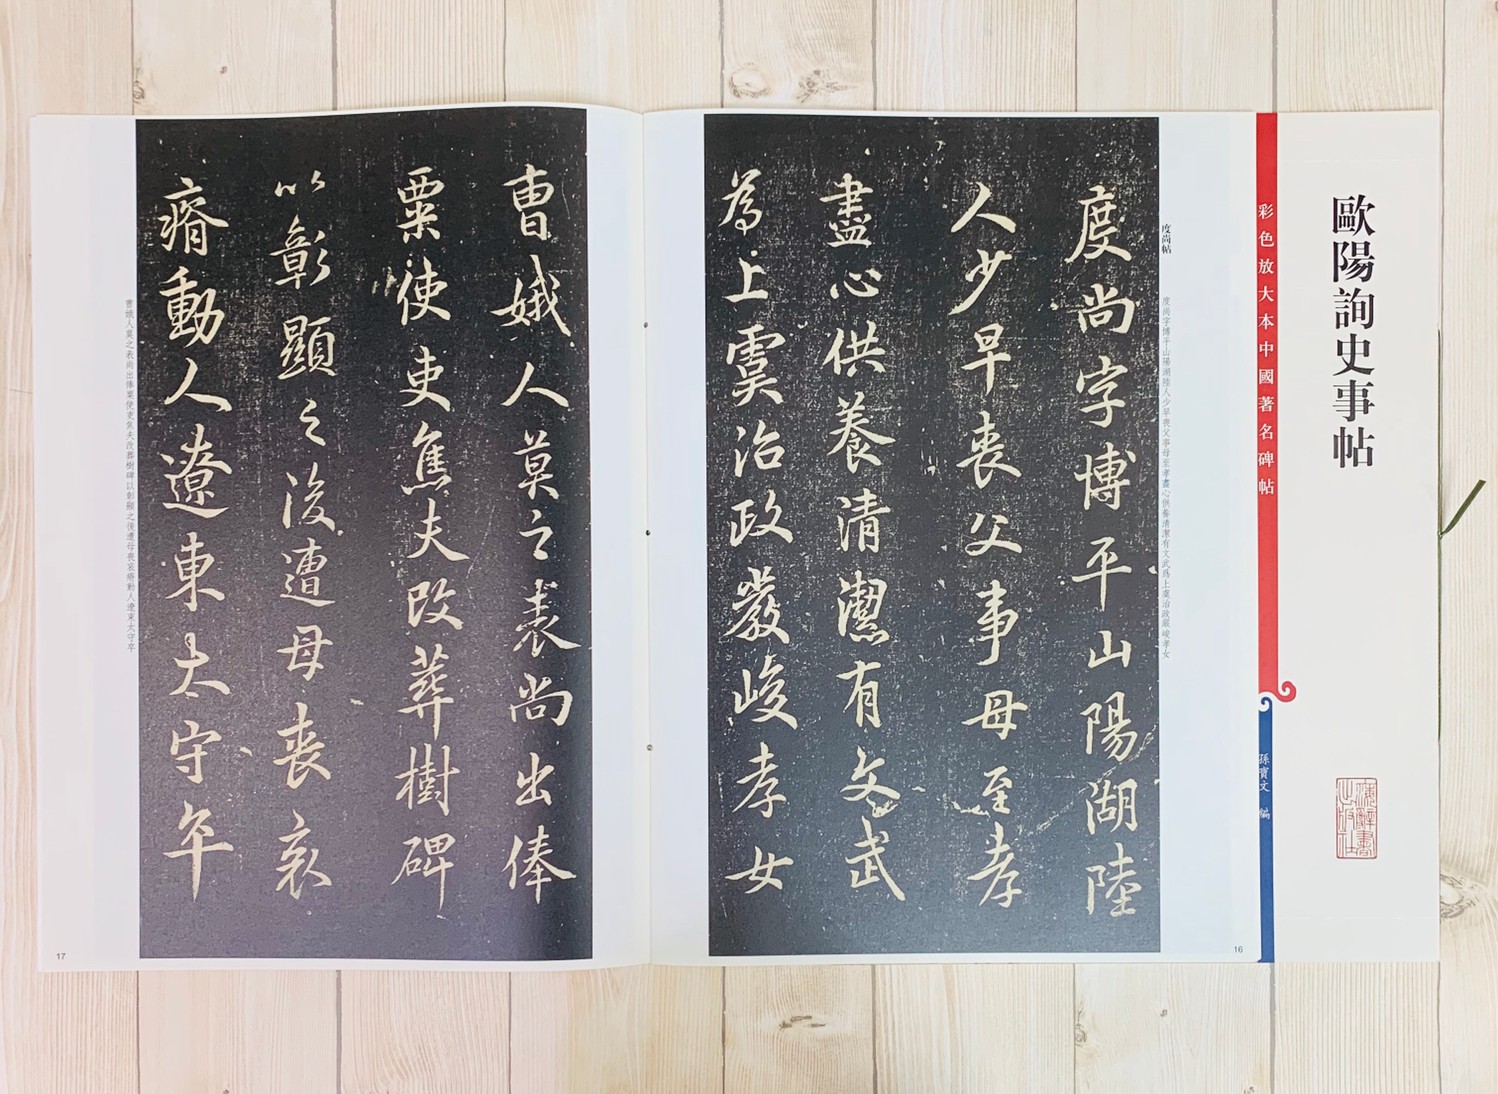 歐陽詢史事帖
彩色放大本中國著名碑帖
孫寶文 編
度尚帖
度尚字博平山陽湖陸人少早喪父事母至孝盡心供養清潔有文武爲上虞治政嚴峻孝女
度尚字博平山陽湖陸
人少早喪父事母至孝
盡心供養清潔有文武
為上虞治政嚴峻孝女
16
曹娥人莫之表尚出俸
粟使吏焦夫改葬樹碑
以彰顯之後遭母喪哀
瘠動人遼東太守卒
曹娥人莫之表尚出俸粟使吏焦夫改葬樹碑以彰顯之後遭母喪哀瘠動人遼東太守卒
17